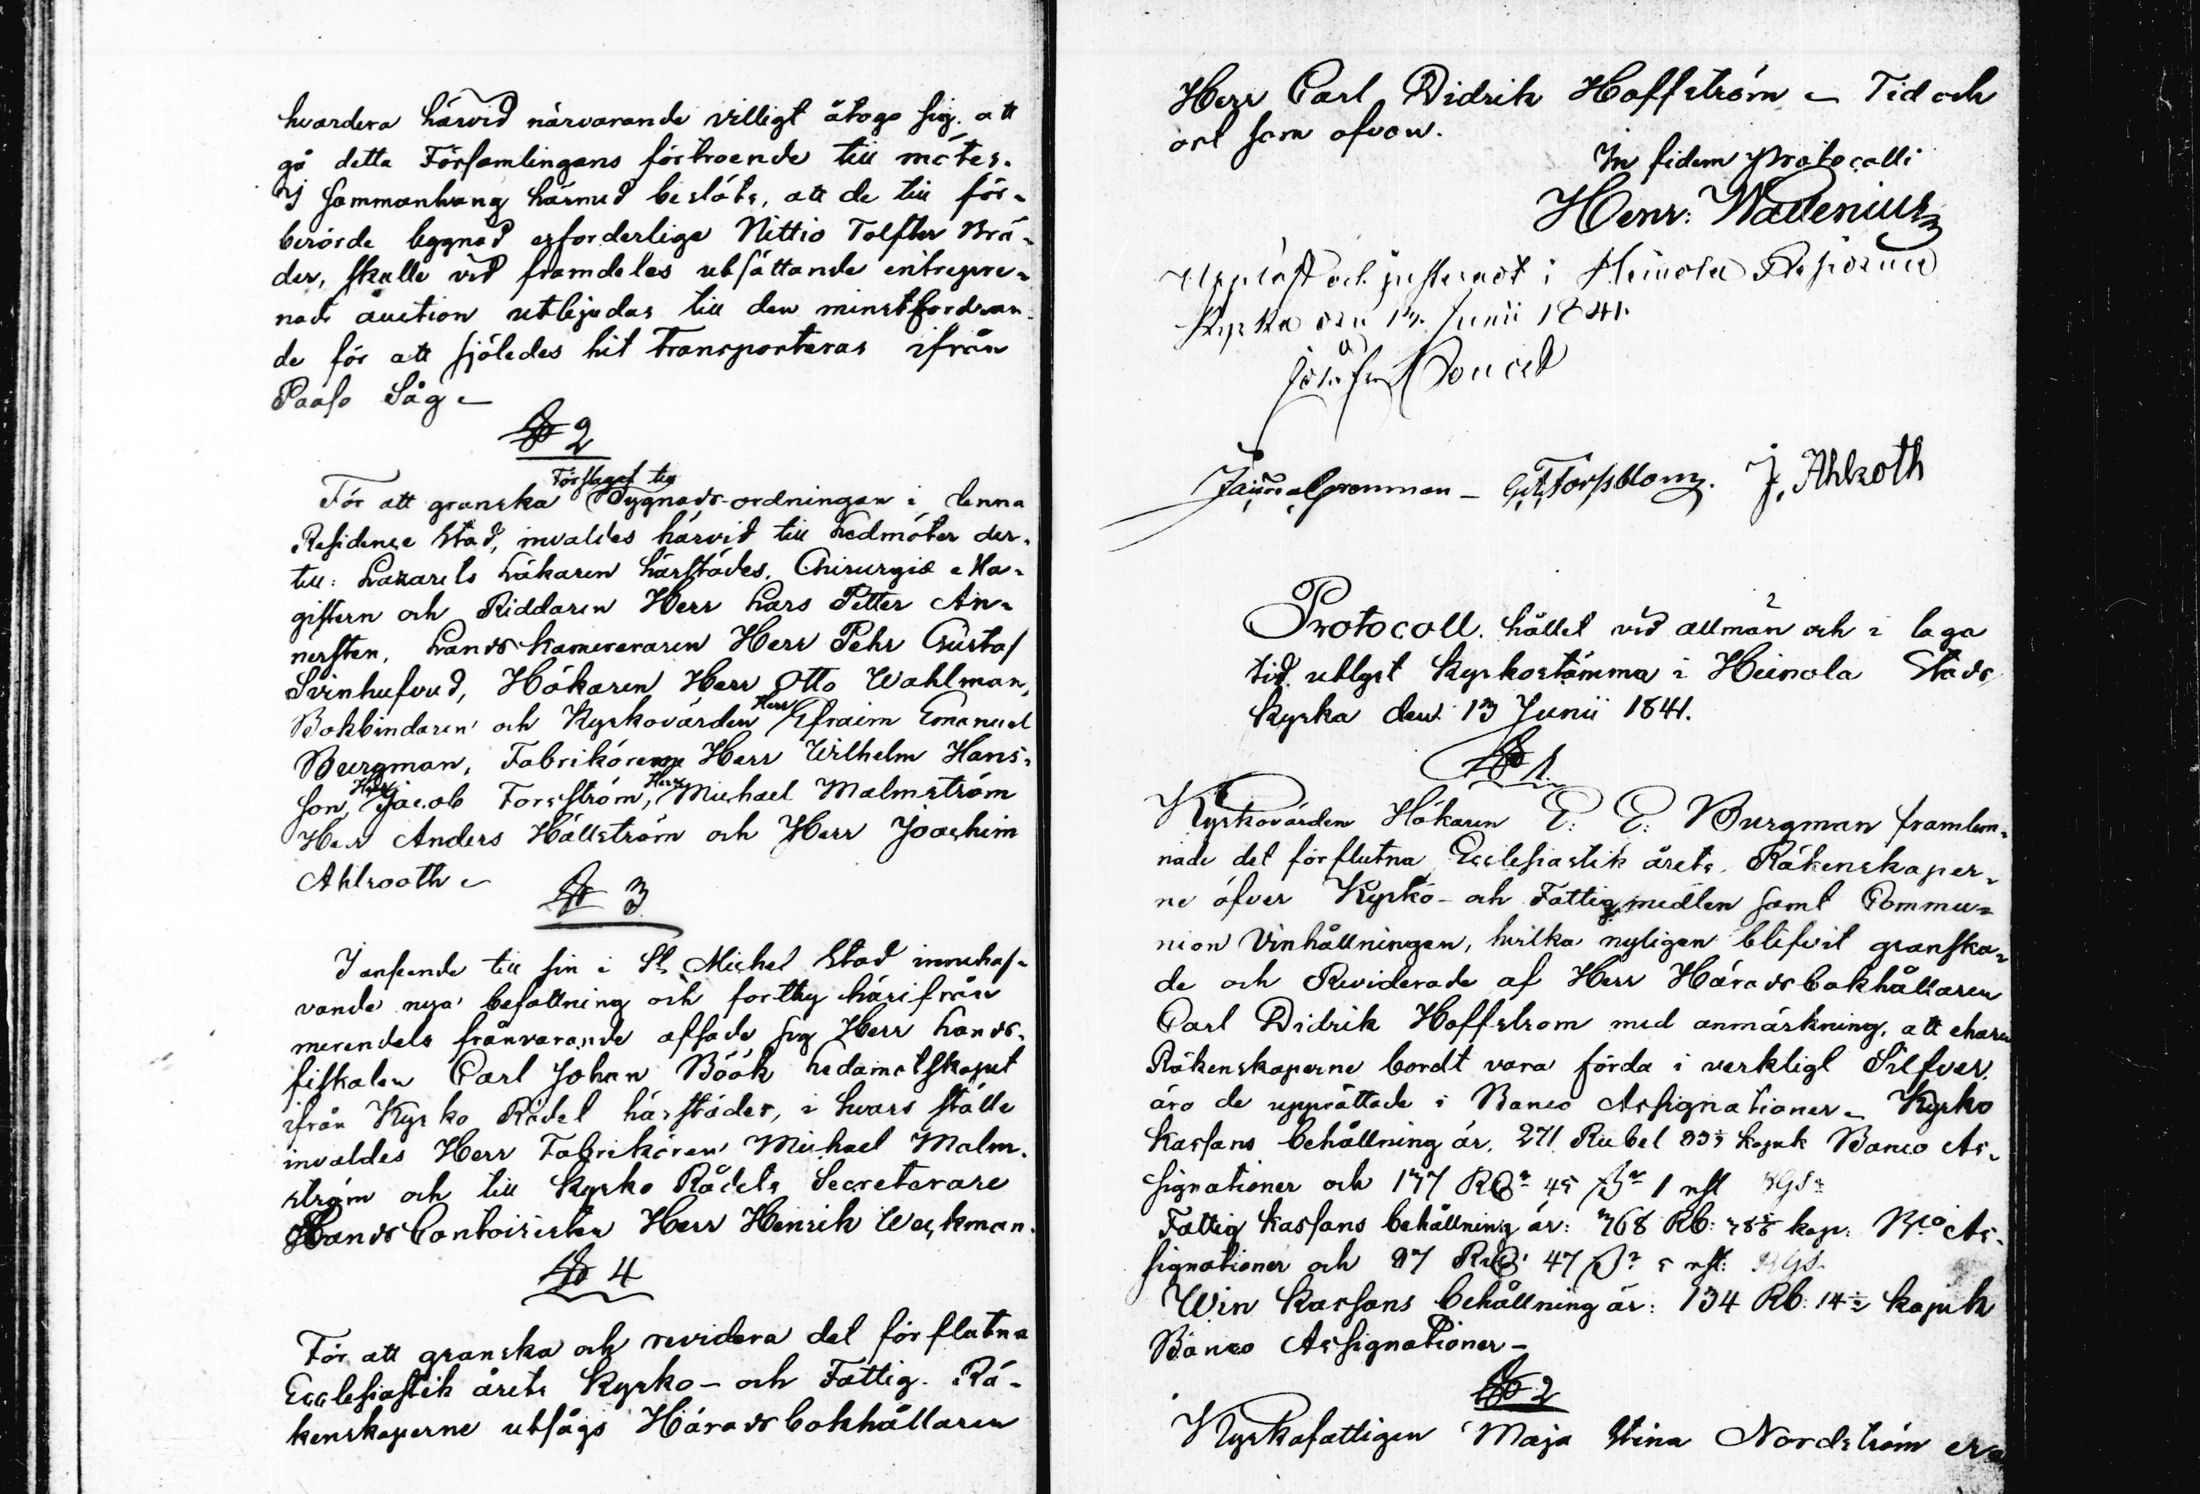 hvardera härvid närvarande villigt åtogo sig. att
gå detta Församlingens förtroende till mötes.
I sammanhang härmed beslöts, att de till för-
berörde byggnad erforderlige Nittio Tolfter Brä-
der, skulle vid framdeles utsättande entrepre-
nade auction utbjudas till den minstfordran
de för att sjöledes hit transporteras ifrån
Paaso Såg
§ 2
Förslaget till
För att granska Bygnads-ordningen i denna
Residence Stad, invaldes härvid till Ledmöter der-
till: Lazarets Läkaren härstädes, Chirurgiæ Ma-
gistern och Riddaren Herr Lars Petter An-
nersten, Lands Kamereraren Herr Pehr Gustaf
Svinhufvud, Hökaren Herr Otto Wahlman,
Bokbindaren och Kyrkovärden Herr Efraim Emanuel
Burgman, Fabrikörerne Herr Wilhelm Hans-
son, Herr Jacob Forsström, Herr Michael Malmström
Herr Anders Hällström och Herr Joachim
Ahlrooth
§ 3
I anseende till sin i St Michel Stad innehaf-
vande nya befattning och forthy härifrån
merendels frånvarande afsade sig Herr Lands-
fiskalen Carl Johan Böök Ledamotskapet
ifrån Kyrko Rådet härstädes, i hvars ställe
invaldes Herr Fabrikören Michael Malm-
ström och till Kyrko Rådets Secreterare
Lands Contoiristen Herr Henrik Weckman.
§ 4
För att granska och revidera det förflutna
Ecclesiastik årets Kyrko- och Fattig- Rä-
kenskaperne utsågs Härads bokhållaren
Herr Carl Didrik Hoffström Tid och
ort som ofvan.
In fidem Protocolli
Henr: Wadenius
Uppläst och justeradt i Heinola
Kyrka den 13 Junii 1841.
J. Ahlroth
Protocoll. hållet vid allmän och i laga
tid utlyst Kyrkostämma i Heinola Stads
Kyrka den 13 Junii 1841.
§ 1.
Kyrkovärden Hökaren E: E: Burgman framlem-
nade det förflutna Ecclesiastik årets Räkenskaper-
ne öfver Kyrko- och Fattigmedlen samt Commu-
nion Vinhållningen, hvilka nyligen blifvit granska-
de och Reviderade af Herr Häradsbokhållaren
Carl Didrik Hoffstrom med anmärkning, att ehuru
Räkenskaperne bordt vara förda i verkligt Silfver.
äro de upprättade i Banco Assignationer Kyrko
Kassans behållning är, 271 Rubel kopek Banco As-
signationer och 137 45 1 rst
Fattig Kassans behållning är: 368 Rb: kop: Bco As-
signationer och 97 47 rst:
Win Kassans behållning är: 134 Rb: 14½ kopek
Banco Assignationer
§ 2
Kyrkofattigen Maja Stina Nordström